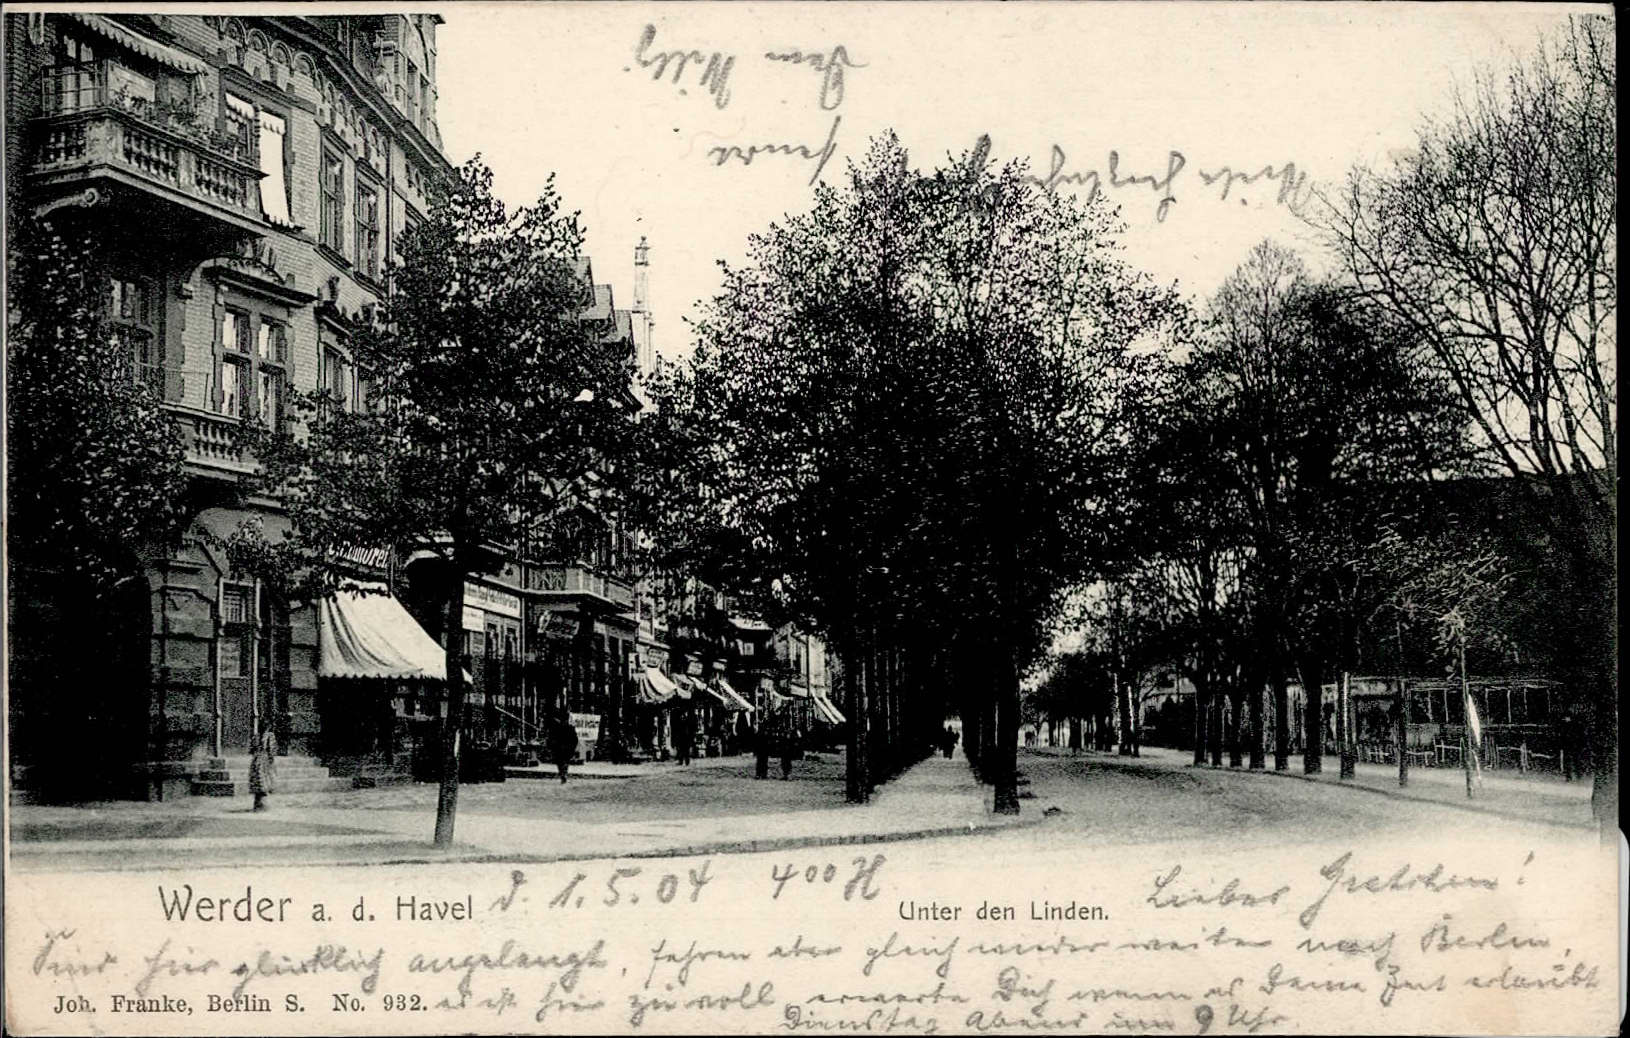 Werder a. d. Havel d. 1.5.04 4⁰⁰ H Unter den Linden. Liebes Gretchen!
Sind hier glücklich angelangt, fahren aber gleich wieder weiter nach Berlin,
Joh. Franke, Berlin S. No. 932. es ist hier zu voll, erwarte Dich wenn es Deine Zeit erlaubt
Dienstag Abend um 9 Uhr.
Viele herzliche
Dein Willy